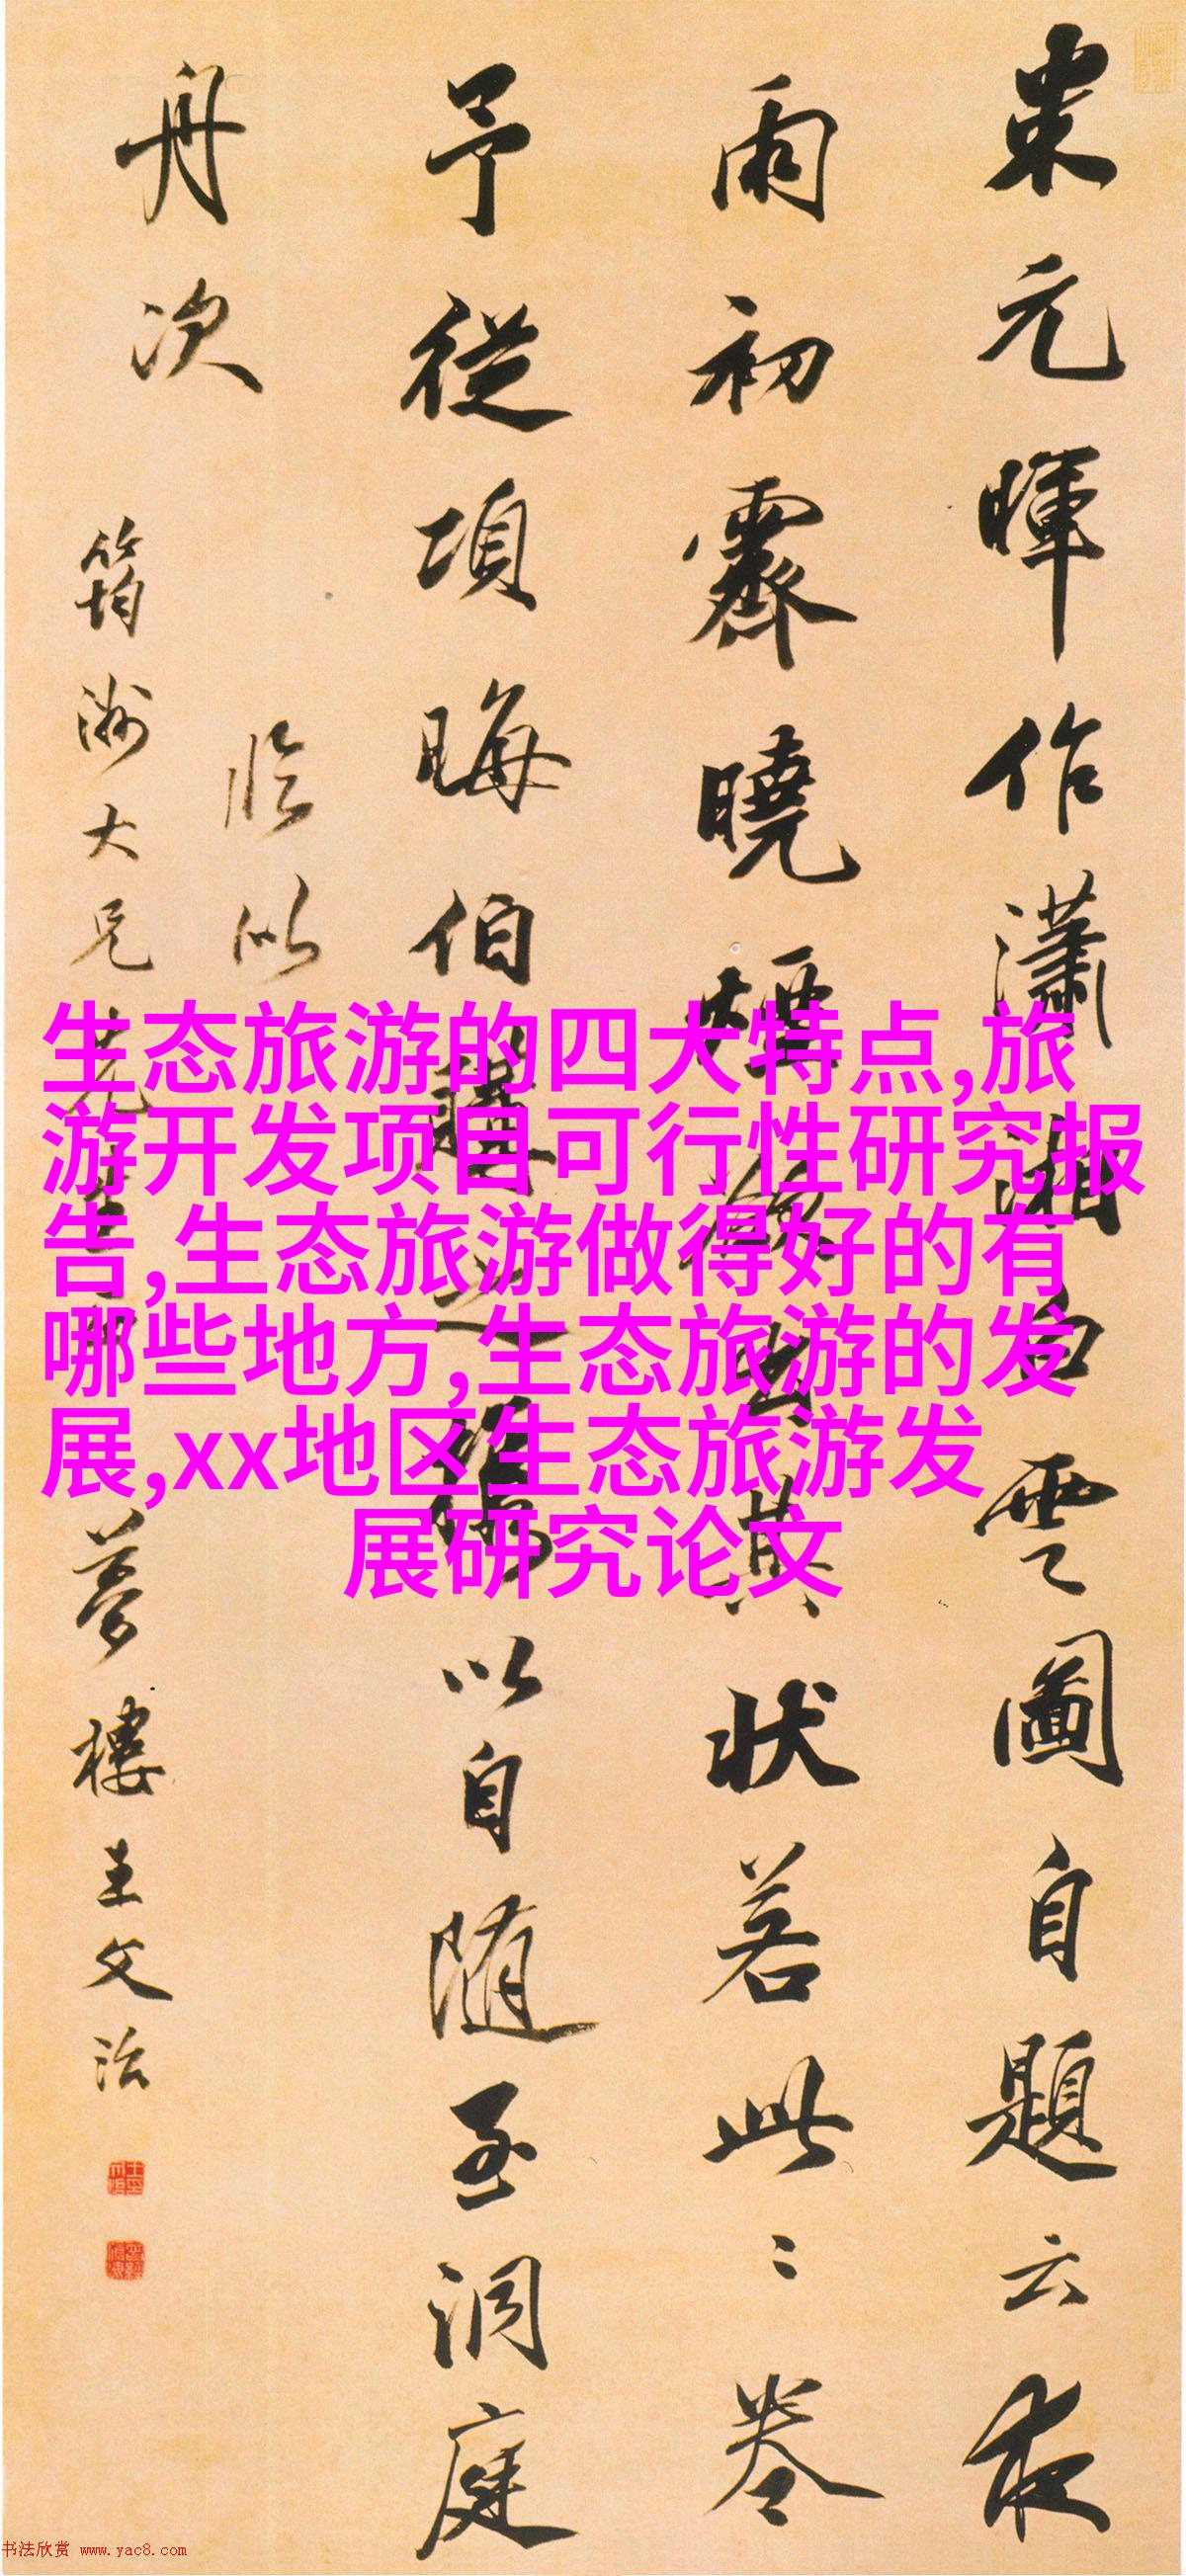 米元暉作瀟湘白雲圖自題云夜
雨初霽曉煙欲出其状若此此卷
予從項晦伯購之攜以自随至洞庭
舟次
臨似
筠洲大兄先生 夢樓王文治
生态旅游的四大特点,旅
游开发项目可行性研究报
告,生态旅游做得好的有
哪些地方,生态旅游的发
展,xx地区生态旅游发
展研究论文
书法欣赏 www.yac8.com